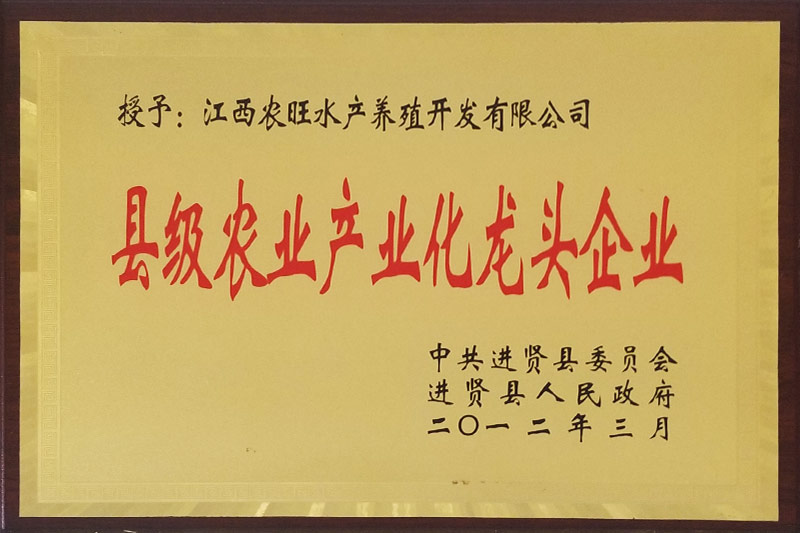 授予：江西农旺水产养殖开发有限公司
县级农业产业化龙头企业
中共进贤县委员会
进贤县人民政府
二〇一二年三月